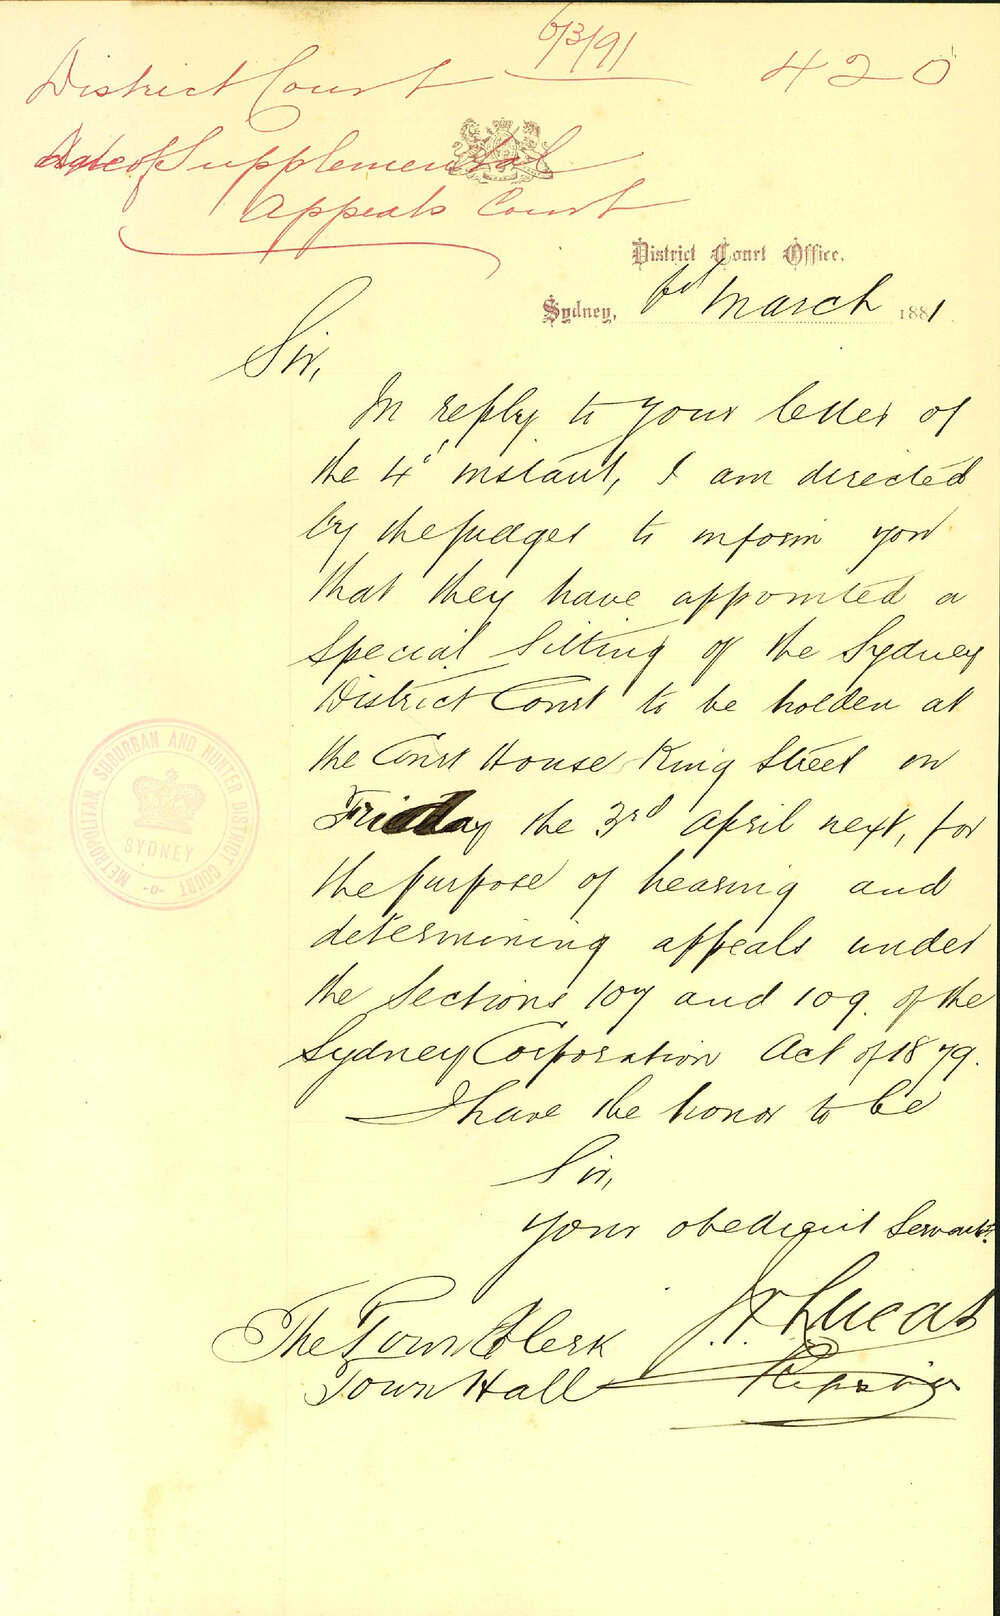 6/3/91
District Court 420
Date of Supplemental
Appeals Court
District Court Office.
Sydney, 6th March 1881
Sir,
In reply to your letter of
the 4th instant, I am directed
by the Judges to inform you
that they have appointed a
special sitting of the Sydney
District Court to be holden at
the Court House King Street on
Friday the 3rd April next, for
the purpose of hearing and
determining appeals under
the Sections 107 and 109. of the
Sydney Corporation Act of 1879.
I have the honor to be
Sir,
Your obedient Servant.
Lucas
The Town Clerk
Town Hall
METROPOLITAN, SUBURBAN AND HUNTER DISTRICT COURT
SYDNEY
-o-